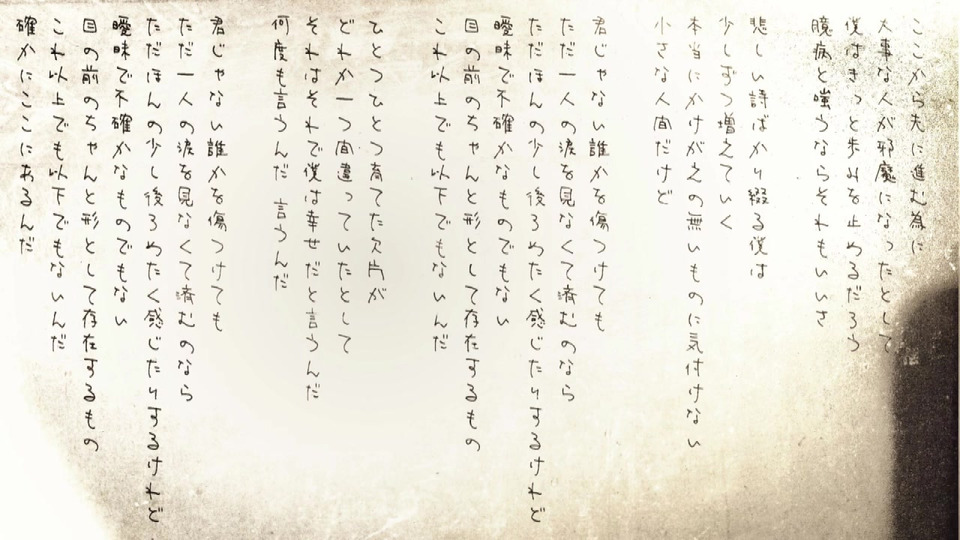 ここから先に進む為に
大事な人が邪魔になったとして
僕はきっと歩みを止めるだろう
臆病と嗤うならそれもいいさ
悲しい詩ばかり綴る僕は
少しずつ増えていく
本当にかけがえの無いものに気付けない
小さな人間だけど
君じゃない誰かを傷つけても
ただ一人の涙を見なくて済むのなら
ただほんの少し後ろめたく感じたりするけれど
曖昧で不確かなものでもない
目の前のちゃんと形として存在するもの
これ以上でも以下でもないんだ
ひとつひとつ育てた欠片が
どれか一つ間違っていたとして
それはそれで僕は幸せだと言うんだ
何度も言うんだ 言うんだ
君じゃない誰かを傷つけても
ただ一人の涙を見なくて済むのなら
ただほんの少し後ろめたく感じたりするけれど
曖昧で不確かなものでもない
目の前のちゃんと形として存在するもの
これ以上でも以下でもないんだ
確かにここにあるんだ